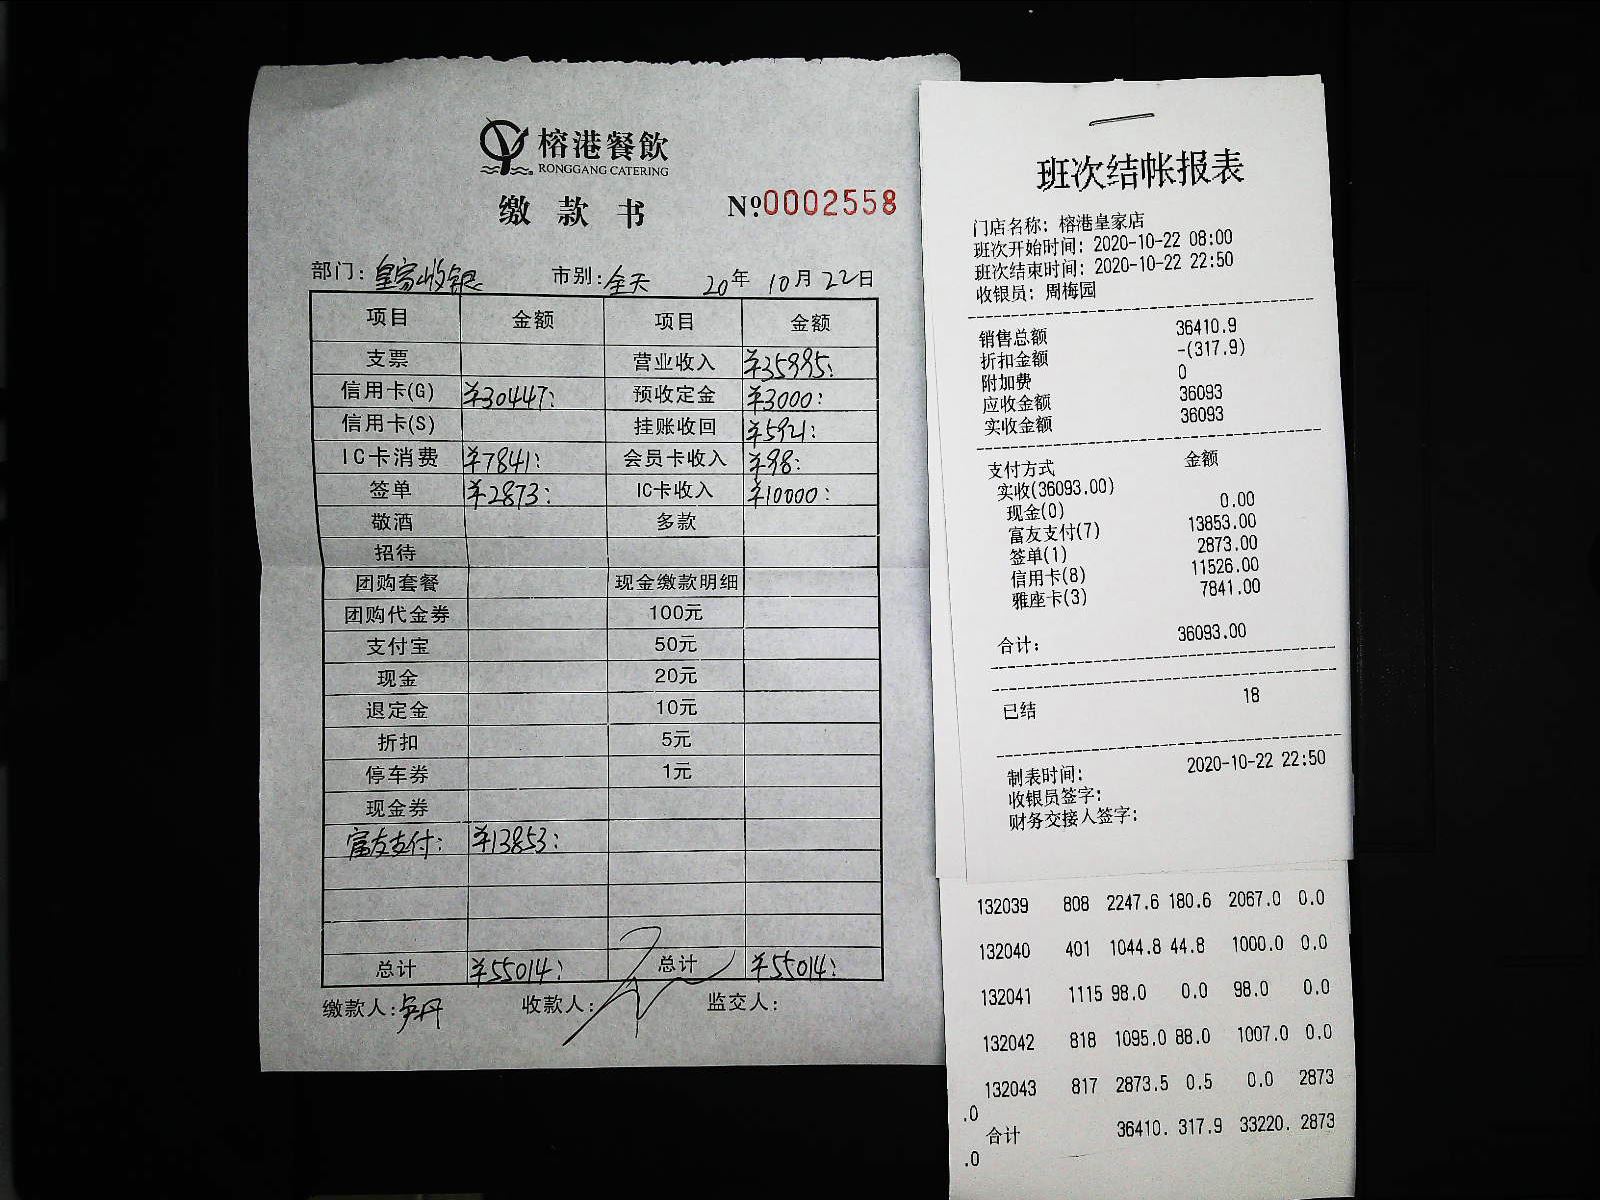 榕港餐飲
RONGGANG CATERING
缴款书
№0002558
部门:皇家收银 市别:全天 20年10月22日
项目 金额 项目 金额
支票 营业收入 ¥35995:
信用卡(G) ¥30447: 预收定金 ¥3000:
信用卡(S) 挂账收回 ¥5921:
IC卡消费 ¥7841: 会员卡收入 ¥98:
签单 ¥2873: IC卡收入 ¥10000:
敬酒 多款
招待
团购套餐 现金缴款明细
团购代金券 100元
支付宝 50元
现金 20元
退定金 10元
折扣 5元
停车券 1元
现金券
富友支付: ¥13853:
总计 ¥55014: 总计 ¥55014:
缴款人: 收款人: 监交人:
班次结帐报表
门店名称: 榕港皇家店
班次开始时间: 2020-10-22 08:00
班次结束时间: 2020-10-22 22:50
收银员: 周梅园
销售总额 36410.9
折扣金额 -(317.9)
附加费 0
应收金额 36093
实收金额 36093
支付方式 金额
实收(36093.00)
现金(0) 0.00
富友支付(7) 13853.00
签单(1) 2873.00
信用卡(8) 11526.00
雅座卡(3) 7841.00
合计: 36093.00
已结 18
制表时间: 2020-10-22 22:50
收银员签字:
财务交接人签字:
132039 808 2247.6 180.6 2067.0 0.0
132040 401 1044.8 44.8 1000.0 0.0
132041 1115 98.0 0.0 98.0 0.0
132042 818 1095.0 88.0 1007.0 0.0
132043 817 2873.5 0.5 0.0 2873
.0
合计 36410. 317.9 33220. 2873
.0